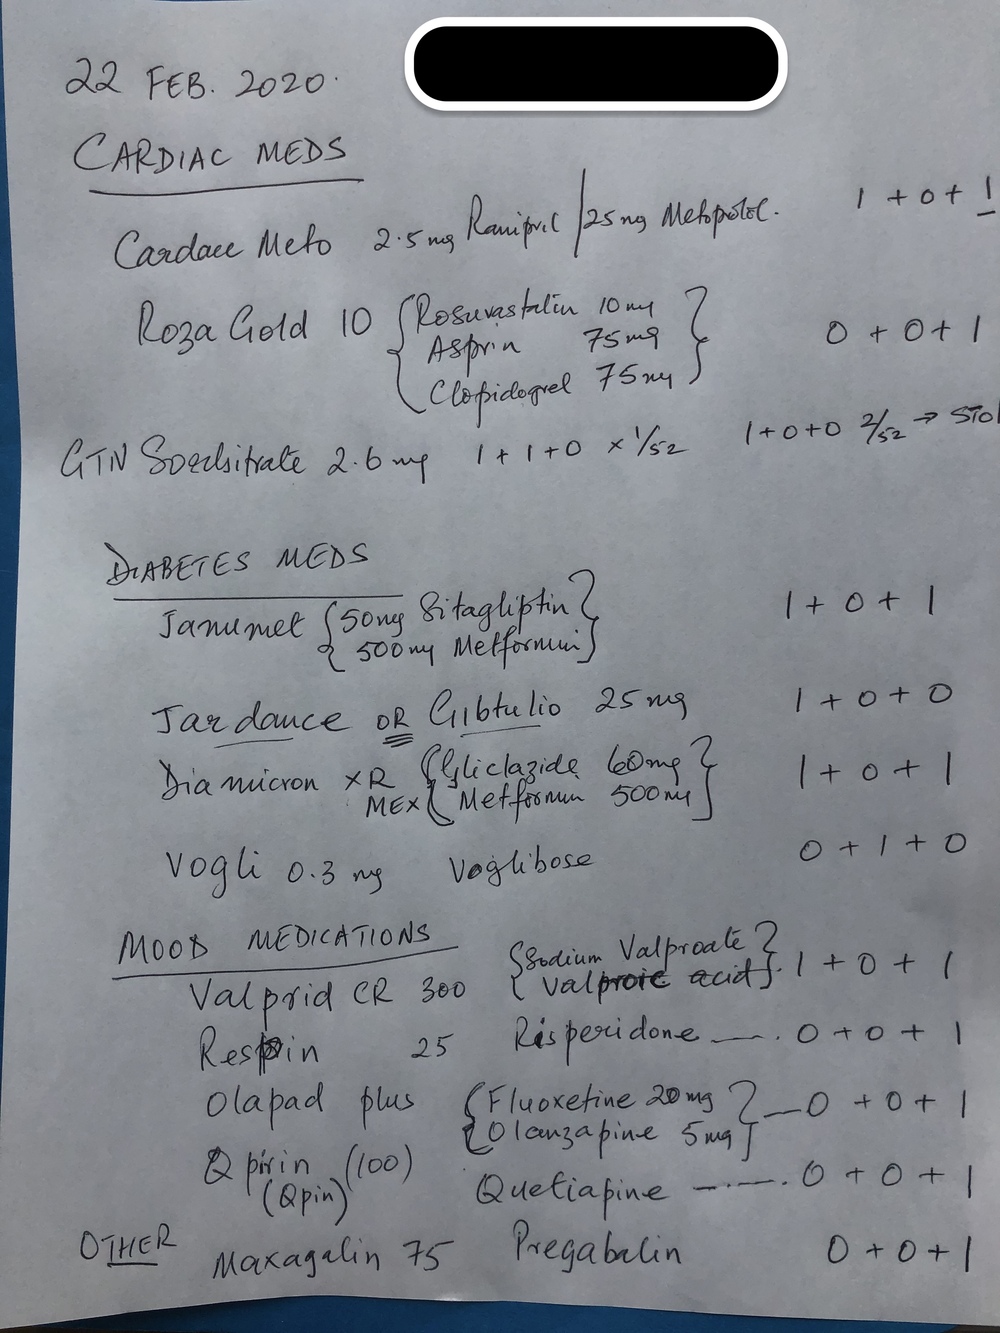 22 FEB. 2020.
CARDIAC MEDS
Cardace Meto 2.5 mg Ramipril / 25 mg Metoprolol. 1 + 0 + 1
Roza Gold 10 { Rosuvastatin 10 mg } 0 + 0 + 1
Asprin 75 mg
Clopidogrel 75 mg
GTN 2.6 mg 1 + 1 + 0 × 1/52 1 + 0 + 0 2/52 → STO
DIABETES MEDS
Janumet { 50mg Sitagliptin } 1 + 0 + 1
500 mg Metformin
Jardance OR Gibtulio 25 mg 1 + 0 + 0
Diamicron XR { Gliclazide 60mg } 1 + 0 + 1
MEX Metformin 500 mg
Vogli 0.3 mg Voglibose 0 + 1 + 0
MOOD MEDICATIONS
Valprid CR 300 { Sodium Valproate } 1 + 0 + 1
Valproic acid
Respin 25 Risperidone 0 + 0 + 1
Olapad plus { Fluoxetine 20 mg } 0 + 0 + 1
Olanzapine 5 mg
Qpirin (100) Quetiapine 0 + 0 + 1
(Qpin)
OTHER Maxagalin 75 Pregabalin 0 + 0 + 1